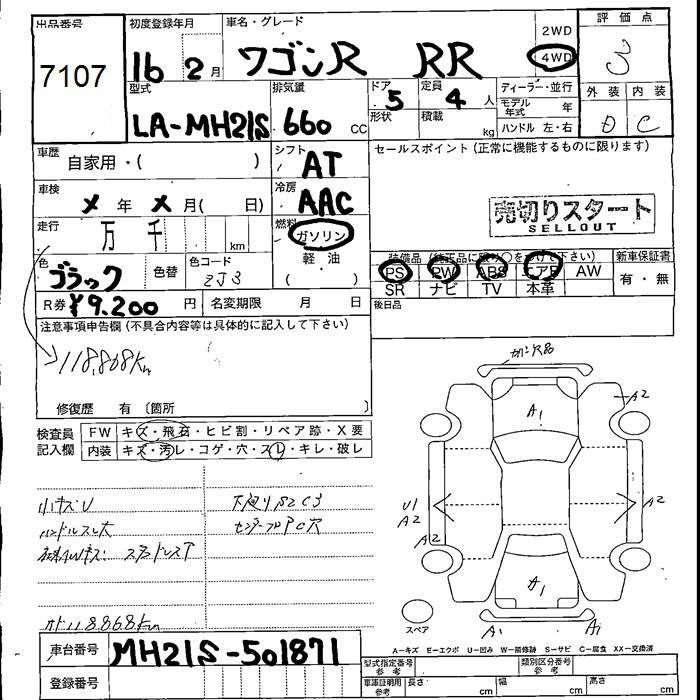 出品番号
7107
初度登録年月
16 2 月
車名・グレード
ワゴンR RR
2WD
4WD
評価点
外装 内装
D C
型式
LA-MH21S
排気量
660 CC
ドア
5
形状
定員
4 人
積載
kg
ディーラー・並行
モデル年式 年
ハンドル 左・右
車歴
自家用・( )
シフト
AT
セールスポイント (正常に機能するものに限ります)
車検
メ 年 メ 月( 日)
冷房
AAC
売切りスタート
SELLOUT
走行
万 千 km
燃料
ガソリン
軽・油
( )
色
ブラック
色替
色コード
ZJ3
新車保証書
有・無
PS PW ABS エアB AW
SR ナビ TV 本革
R券 ¥9.200 円
名変期限 月 日
後日品
注意事項申告欄 (不具合内容等は具体的に記入して下さい)
118,868Km
修復歴 有 〔箇所 〕
検査員
記入欄
FW キズ・飛石・ヒビ割・リペア跡・X要
内装 キズ・汚レ・コゲ・穴・スレ・キレ・破レ
小キズU
ハンドルスレ大
下廻りS2C3
118.868Km
A1
A2
U1
A2
A2
A2
A1
A1
A1
スペア
A-キズ E-エクボ U-凹み W-補修跡 S-サビ C-腐食 XX-交換済
車台番号
MH21S-501871
登録番号
型式指定番号
参考
類別区分番号
参考
車庫証明用
参考
長さ cm
幅 cm
高さ cm